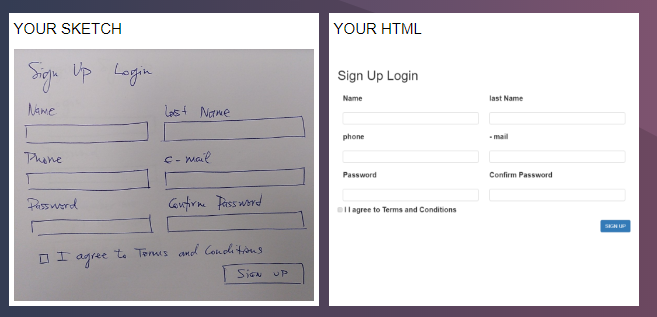 YOUR SKETCH
Sign Up Login
Name Last Name
Phone e-mail
Password Confirm Password
I agree to Terms and Conditions
SIGN UP
YOUR HTML
Sign Up Login
Name last Name
phone - mail
Password Confirm Password
I I agree to Terms and Conditions
SIGN UP